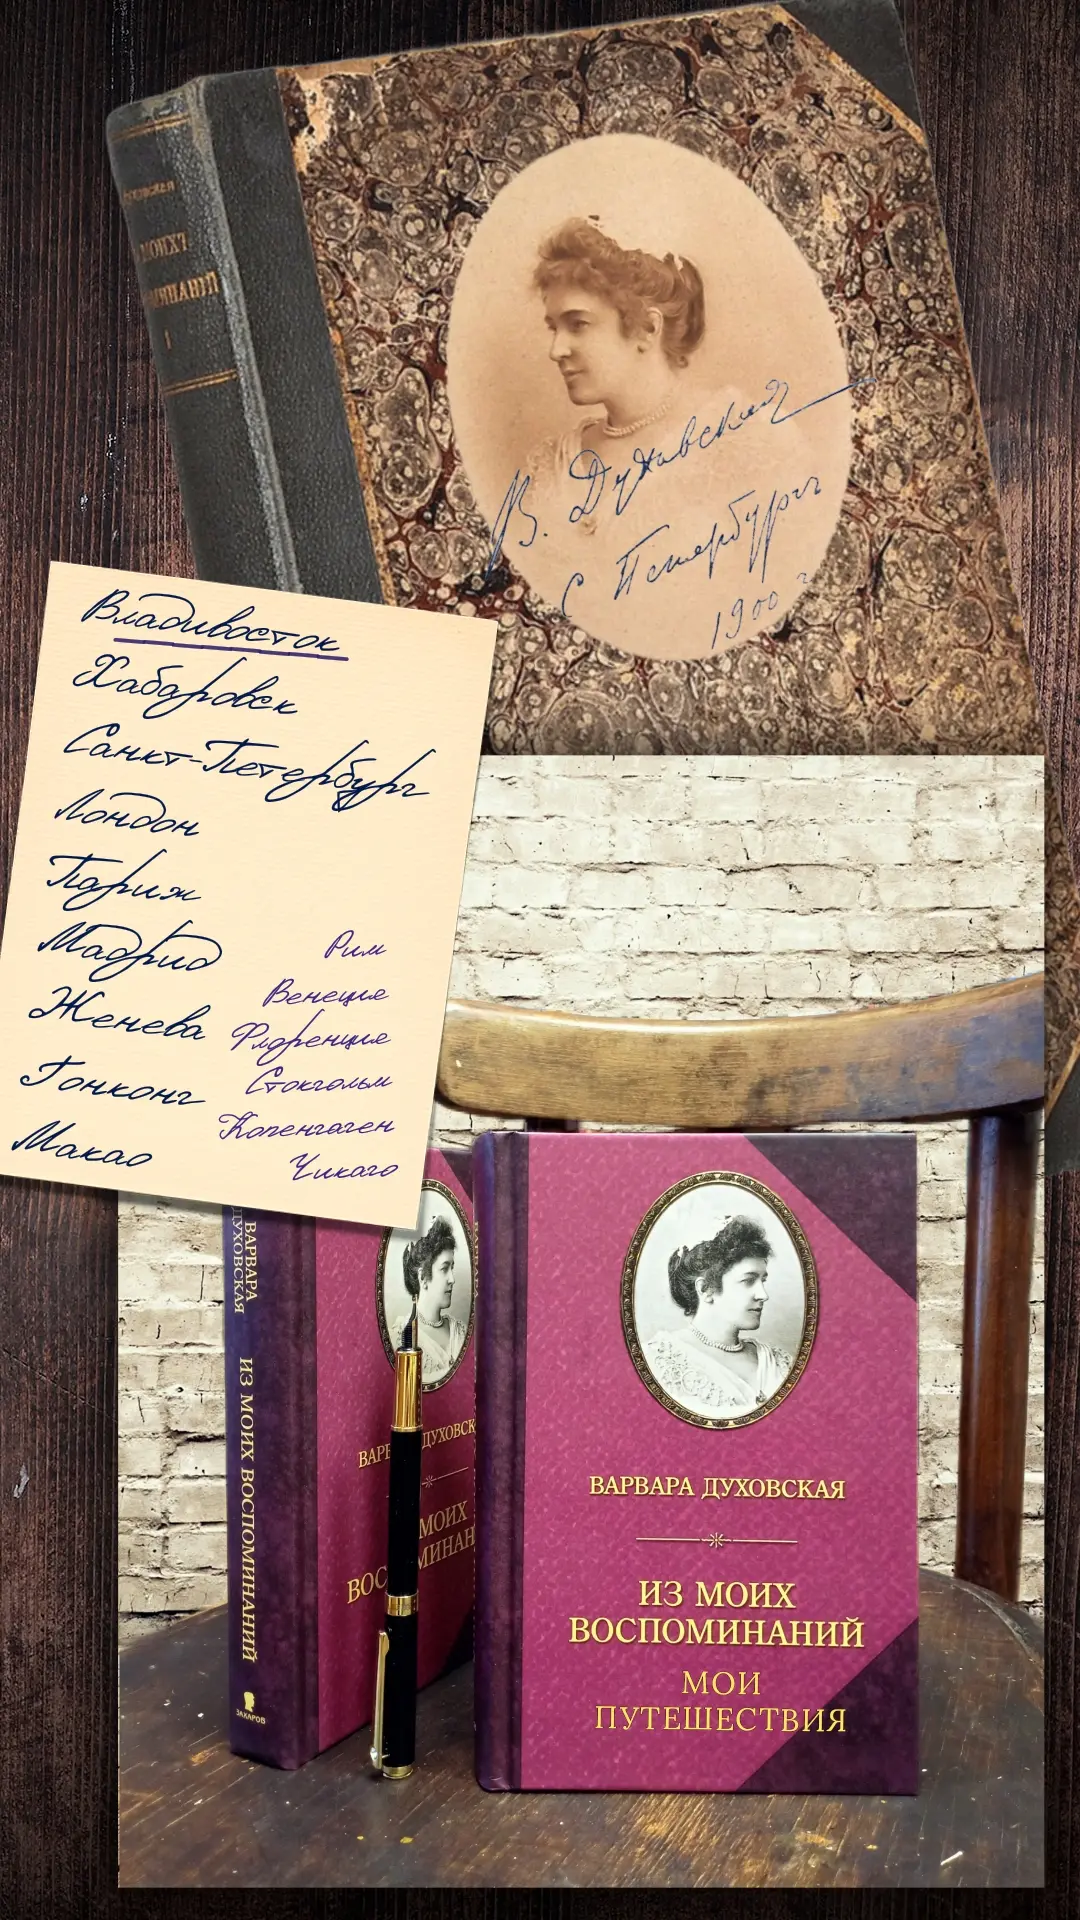 ДУХОВСКАЯ
МОИХЪ
1
В. Духовская
С Петербургъ
1900 г
Владивосток
Хабаровск
Санкт-Петербург
Лондон
Париж
Мадрид
Женева
Гонконг
Макао
Рим
Венеция
Флоренция
Стокгольм
Копенгаген
Чикаго
ВАРВАРА
ДУХОВСКАЯ
ИЗ МОИХ ВОСПОМИНАНИЙ
ЗАХАРОВ
ВАРВАРА
МОИХ
ВАРВАРА ДУХОВСКАЯ
ИЗ МОИХ
ВОСПОМИНАНИЙ
МОИ
ПУТЕШЕСТВИЯ